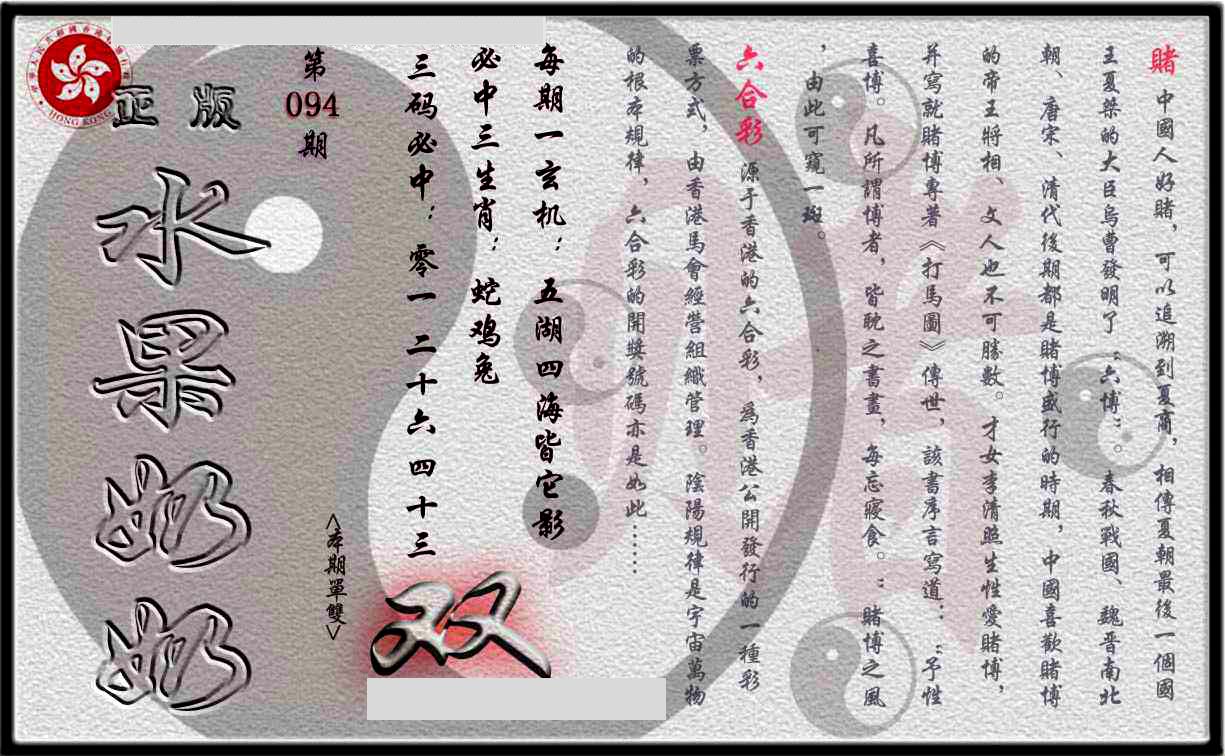 賭 中國人好賭，可以追溯到夏商，相傳夏朝最後一個國
王夏桀的大臣烏曹發明了“六博”。春秋戰國、魏晋南北
朝、唐宋、清代後期都是賭博盛行的時期，中國喜歡賭博
的帝王將相、文人也不可勝數。才女李清照生性愛賭博，
并寫就賭博專著《打馬圖》傳世，該書序言寫道：“予性
喜博。凡所謂博者，皆耽之書晝，每忘寢食。”賭博之風
，由此可窺一斑。
六合彩 源于香港的六合彩，爲香港公開發行的一種彩
票方式，由香港馬會經營組織管理。陰陽規律是宇宙萬物
的根本規律，六合彩的開獎號碼亦是如此……
每期一玄机：五湖四海皆它影
必中三生肖：蛇鸡兔
三码必中：零一二十六四十三
双
<本期單雙>
第
094
期
正版
水果奶奶
HONG KONG